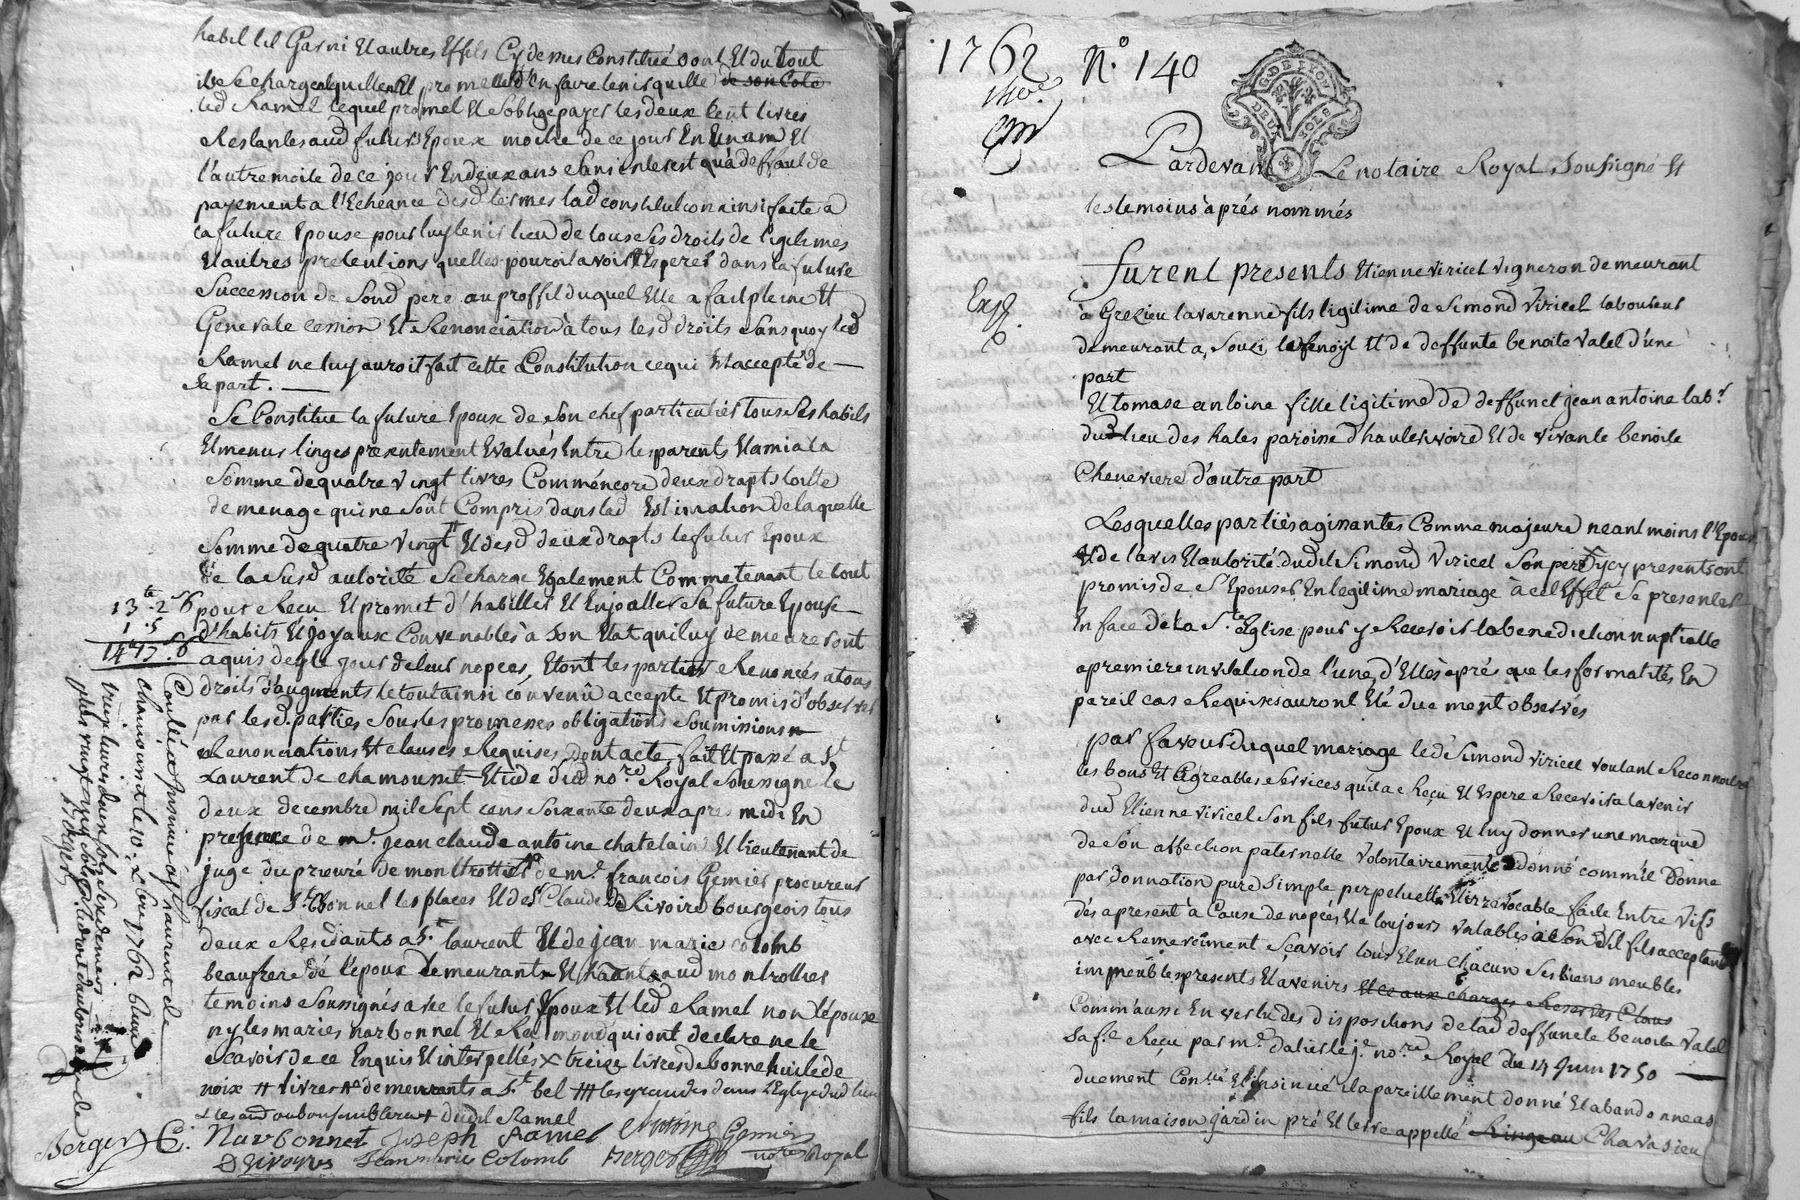 habil lil Garni et autres Effets Cy dessus Constitué dont et du tout
ils se chargent quittent et promettent en faire tenir quitte de son Coté
led Ramel lequel promet et soblige payer les deux cent livres
Restantes aud futur Epoux moitié de ce jour En un an et
l'autre moitié de ce jour En deux ans sans interest qu'a deffaut de
payement a l'Echéance desd termes lad constitution ainsi faite a
la future Epouse pour luy tenir lieu de tous ses droits de legitimes
et autres pretentions quelles pouroit avoir et Esperer dans la future
Succession de Sond pere au proffit duquel Elle a fait pleine et
Generale cession et Renonciation à tous lesd droits sans quoy led
Ramel ne luy auroit fait cette Constitution ce qui Est accepté de
Sa part.
Se Constitue la future Epouse de Son chef particulier tous Ses habits
et menus linges presentement Evalués Entre les parents et amis a la
Somme de quatre vingt livres Commencore deux drapts toille
de menage qui ne Sont Compris dans lad Estimation de la quelle
Somme de quatre vingt lt et desd deux drapts le futur Epoux
de la Susd autorité Se charge Egalement Comme tenant le tout
pour Reçu et promet d'habiller et Enjoaller Sa future Epouse
d'habits et joyaux Convenables à son Etat qui luy demeureront
aquis des le jour de leur nopces, Etont les parties Renoncés a tous
droits d'augments le tout ainsi convenû accepté et promis d'observer
par lesd. parties Sous les promesses obligations Soumissions
Renonciations et clauses Requises, Dont acte, fait et passé a St
Laurent de chamousset Etude dud nore Royal Soussigné le
deux decembre mil Sept cens Soixante deux apres midi En
presence de mr. jean claude antoine chatelain et lieutenant de
juge du prieuré de montrottier de mr. françois Gemier procureur
fiscal de St Bonnet les places et de Sr Claude de Rivoire bourgeois tous
deux Residants a St laurent et de jean marie colomb
beaufrere de l'epoux demeurant aud montrottier
temoins Soussignés avec le futur Epoux et led Ramel non l'épouse
ny les mariés narbonnet et Raimond qui ont declaré ne le
Scavoir de ce Enquis et interpellés x treize livres de bonne huile de
noix # livres demeurants a St bel ## les grandes dans l'Eglise dud lieu
dudit Ramel
Narbonnet Joseph Ramel Antoine Gemier
DRivoyre Jean marie Colomb Berger nore Royal
Berger
13 lt. 2 s 6
1. 5
14 lt 7 s. 6
Conllé & Insinué a St laurent de
chamousset le 10. xbre 1762 Reçu
treize livres deux sols six deniers
plus vingt cinq sols pr le droit dauthorisation de
Berger
1762
Exp.
N.° 140
G. DE LYON
DEUX SOLS
Pardevant Le notaire Royal Soussigné et
les temoins après nommés
furent presents Etienne viricel vigneron demeurant
à Grezieu lavarenne fils legitime de Simond viricel laboureur
demeurant a Souzi lafenoyl et de deffunte benoite valet d'une
part
Et tomase antoine fille legitime de deffunct jean antoine labr
dud lieu des hales paroisse d'hauterivoire et de vivante benoite
Cheneviere d'autre part
Lesquelles parties agissantes Comme majeure neantmoins l'Epoux
de lavis et autorité dudit Simond viricel Son pere icy present ont
promis de S'Epouser En legitime mariage à cet Effet Se presenter
En face de la Ste Eglise pour y Recevoir la benediction nuptialle
a premiere invitation de l'une d'Elles après que les formalités En
pareil cas Requises auront Eté duement observés
par faveur duquel mariage led Simond viricel voulant Reconnoitre
les bons et agreables Services qu'il a Reçu et Espere Recevoir a lavenir
dud Etienne viricel Son fils futur Epoux et luy donner une marque
de Son affection paternelle volontairement a donné comm'il Donne
par donnation pure Simple perpetuelle Et irrevocable faite Entre Vifs
dés apresent à Cause de nopces et a toujours valables a Son dit fils acceptant
avec Remerciment Scavoir tous et un chacun Ses biens meubles
immeubles presents et avenirs Et ce aux charges Reserves Claus
Comm'aussi En vertu des dispositions de lad deffunte benoite Valet
Sa fe Reçu par me dalier le je. nore Royal du 14 Juin 1750
duement Conllé Et Insinué il a pareillement donné Et abandonné a Sd
fils la maison jardin pré et terre appellé Ringeau Chavassieu